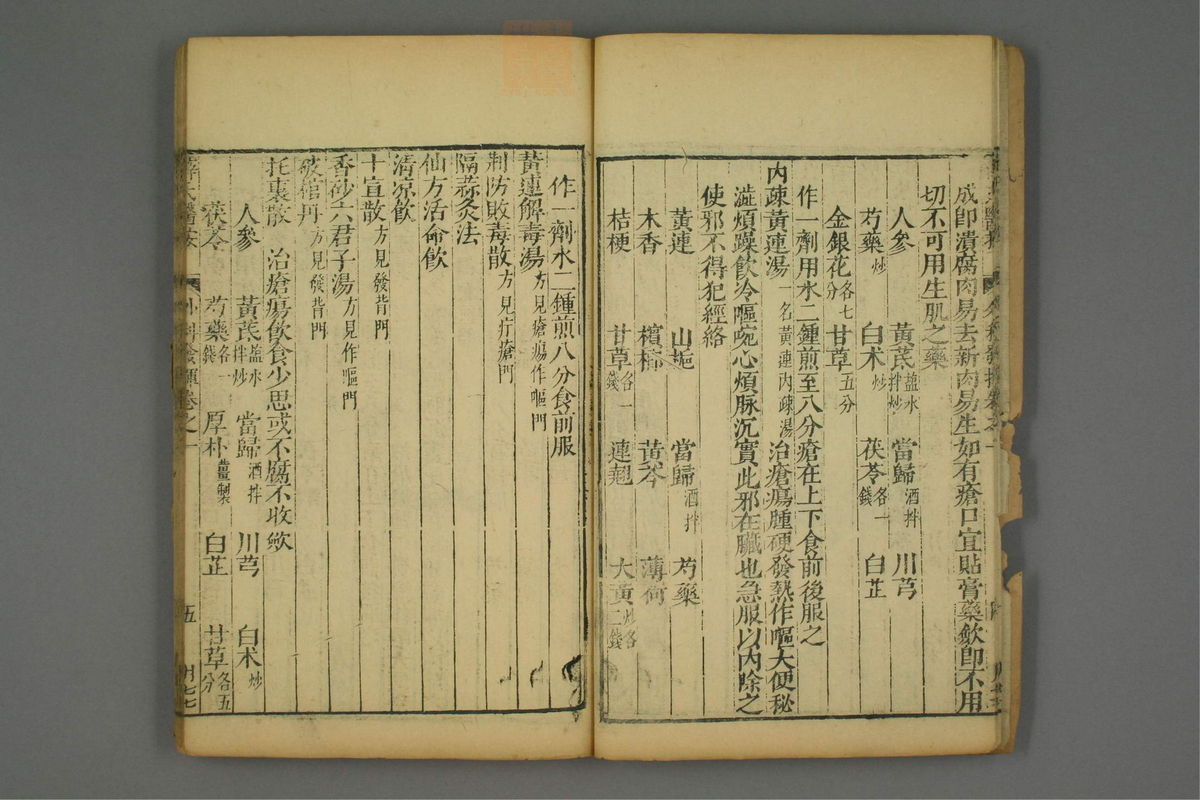 成卽潰腐肉易去新肉易生如有瘡口宜貼膏藥歛卽不用
切不可用生肌之藥
人參 黃芪鹽水拌炒 當歸酒拌 川芎
芍藥炒 白术炒 茯苓各一錢 白芷
金銀花各七分 甘草五分
作一劑用水二鍾煎至八分瘡在上下食前後服之
內疎黃連湯一名黃連內疎湯 治瘡瘍腫硬發熱作嘔大便秘
澁煩躁飮冷嘔啘心煩脉沉實此邪在臟也急服以內除之
使邪不得犯經絡
黃連 山梔 當歸酒拌 芍藥
木香 檳榔 黃芩 薄荷
桔梗 甘草各一錢 連翹 大黃炒各二錢
作一劑水二鍾煎八分食前服
黃連解毒湯方見瘡瘍作嘔門
荆防敗毒散方見疔瘡門
隔蒜灸法
仙方活命飮
清凉飮
十宣散方見發背門
香砂六君子湯方見作嘔門
破棺丹方見發背門
托裏散 治瘡瘍飮食少思或不腐不收歛
人參 黃芪鹽水拌炒 當歸酒拌 川芎 白术炒
茯苓 芍藥各一錢 厚朴薑製 白芷 甘草各五分
薛氏醫案 外科 卷之一 五